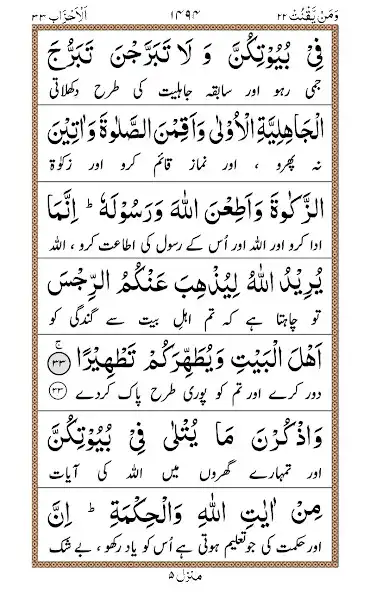 وَمَنْ يَّقْنُتْ ٢٢ ١٤٩٤ اَلْاَحْزَاب ٣٣
فِيْ بُيُوْتِكُنَّ وَ لَا تَبَرَّجْنَ تَبَرُّجَ
جمی رہو اور سابقہ جاہلیت کی طرح دکھلاتی
الْجَاهِلِيَّةِ الْاُوْلٰى وَاَقِمْنَ الصَّلٰوةَ وَاٰتِيْنَ
نہ پھرو ، اور نماز قائم کرو اور زکوٰۃ
الزَّكٰوةَ وَاَطِعْنَ اللهَ وَرَسُوْلَهٗ ؕ اِنَّمَا
ادا کرو اور اللہ اور اُس کے رسول کی اطاعت کرو ، اللہ
يُرِيْدُ اللهُ لِيُذْهِبَ عَنْكُمُ الرِّجْسَ
تو چاہتا ہے کہ تم اہلِ بیت سے گندگی کو
اَهْلَ الْبَيْتِ وَيُطَهِّرَكُمْ تَطْهِيْرًا ۚ ٣٣
دور کرے اور تم کو پوری طرح پاک کردے ٣٣
وَاذْكُرْنَ مَا يُتْلٰى فِيْ بُيُوْتِكُنَّ
اور تمہارے گھروں میں اللہ کی آیات
مِنْ اٰيٰتِ اللهِ وَالْحِكْمَةِ ؕ اِنَّ
اور حکمت کی جو تعلیم ہوتی ہے اُس کو یاد رکھو ، بے شک
منزل ٥